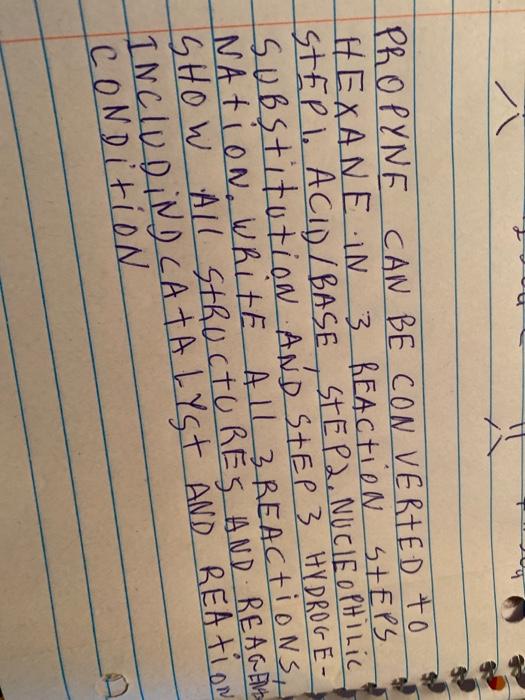 PROPYNE CAN BE CONVERTED to
HEXANE IN 3 REACtiON StEPS
StEP1. ACID/BASE, StEP2. NUCLEOPHILIC
SUBStitUtiON AND StEP 3 HYDROGE-
NAtiON. WRitE All 3 REACtiONS,
SHOW All StRUCtURES AND REAGENtS
INCLUDiND CAtALYSt AND REAtiON
CONDitiON